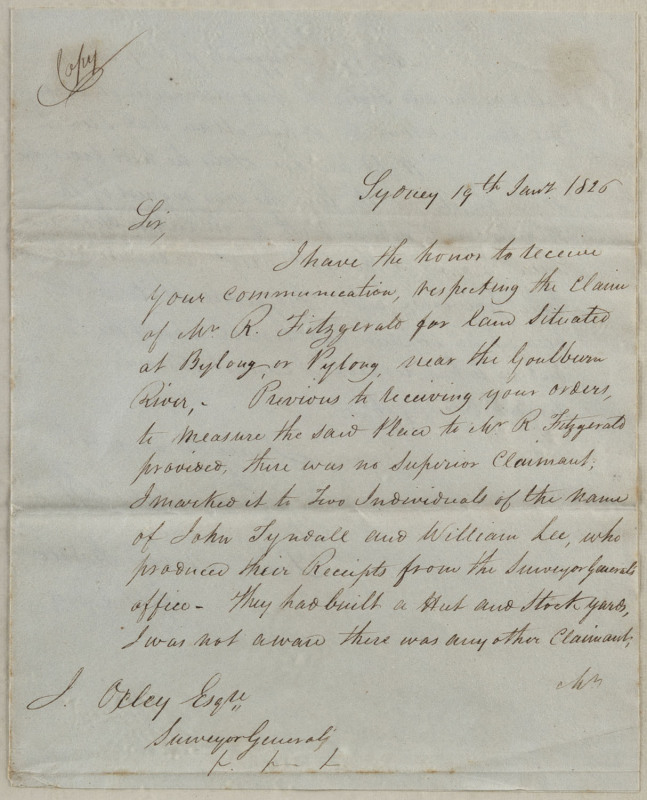 Copy
Sydney 19th Jany. 1826
Sir,
I have the honor to receive
your communication, respecting the Claim
of Mr. R. Fitzgerald for land situated
at Bylong, or Pylong, near the Goulburn
River, - Previous to receiving your orders,
to measure the said Place to Mr R Fitzgerald
provided, there was no superior Claimant;
I marked it to Two Individuals of the name
of John Tyndall and William Lee, who
produced their Receipts from the Surveyor Generals
office - They had built a Hut and Stock yards,
I was not aware there was any other Claimant;
Mr
J. Oxley Esqre
Surveyor General